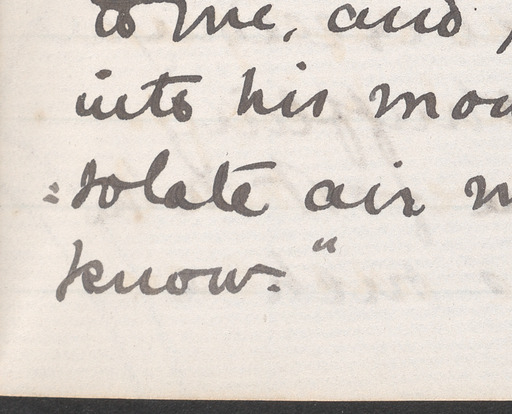 to me, and
into his mou
:solate air m
know."